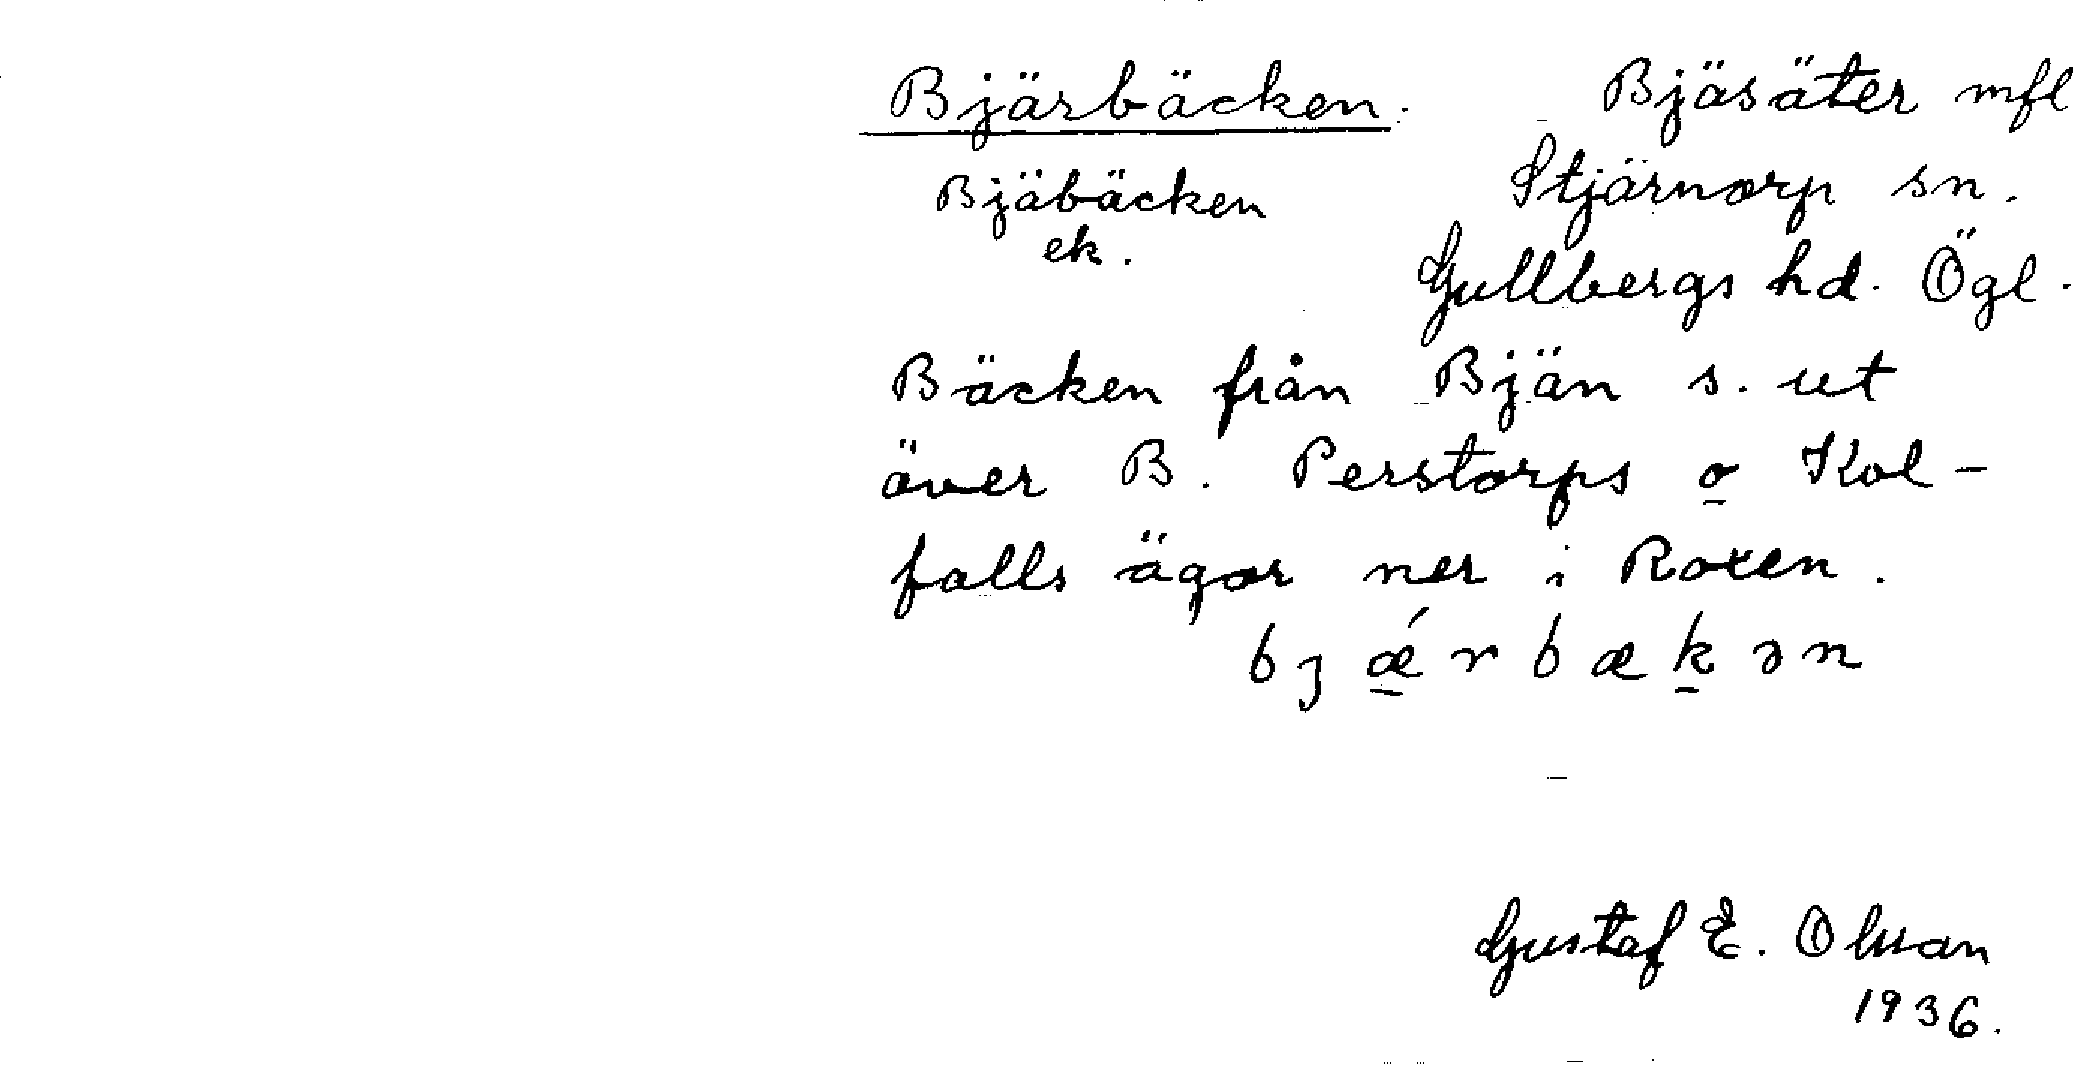 Bjärbäcken. Bjäsäter mfl
Bjäbäcken Stjärnorp sn.
ek. Gullbergs hd. Ögl.
Bäcken från Bjän s. ut
över B. Perstorps o Kol-
falls ägor ner i Roxen.
bjǽrbækən
Gustaf E. Olsson
1936.